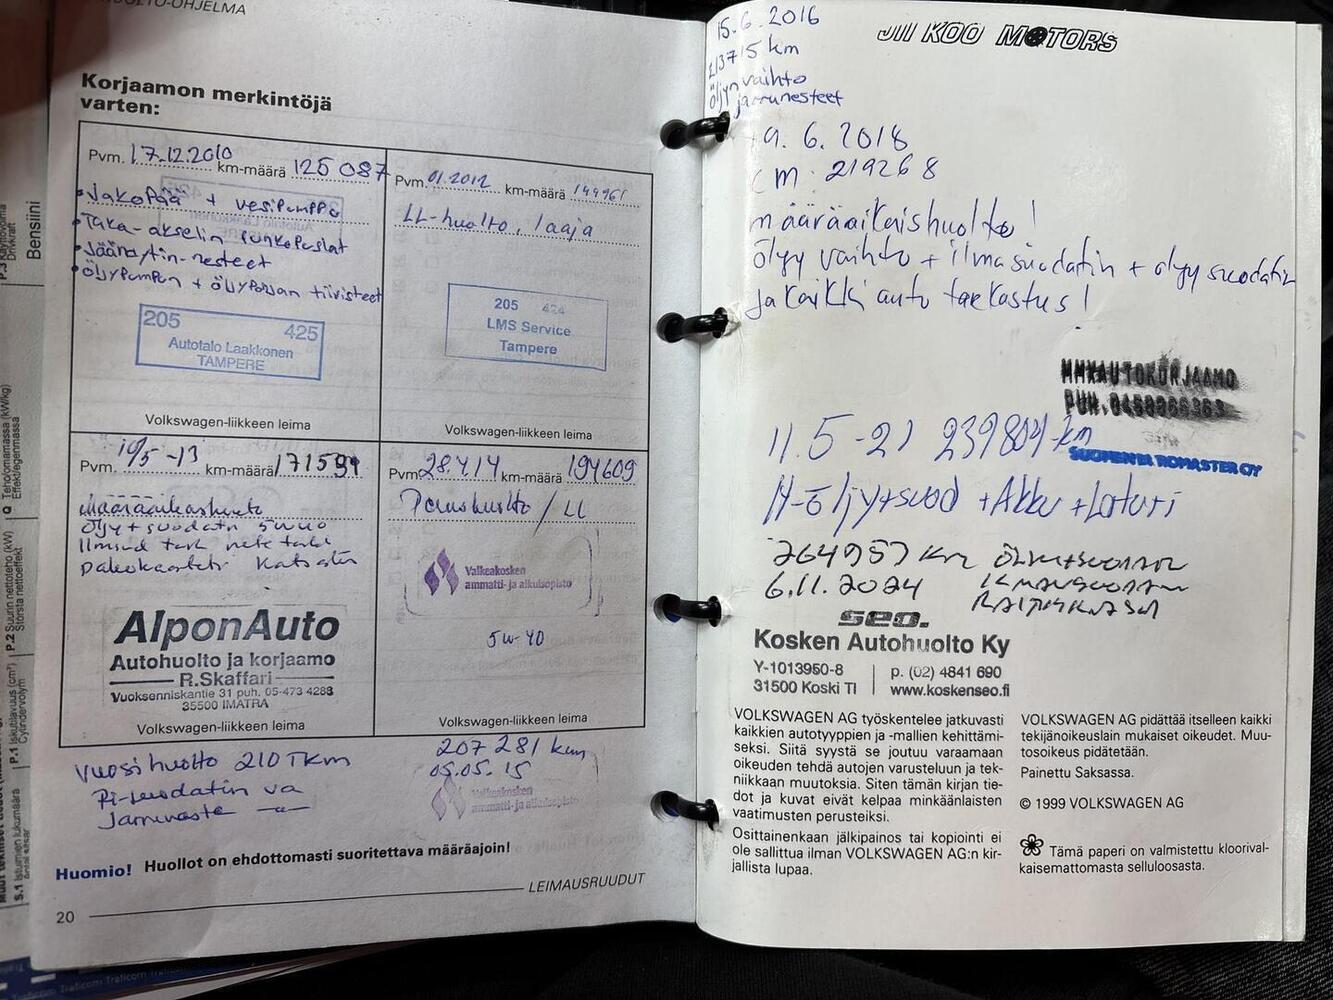 HUOLTO-OHJELMA
Korjaamon merkintöjä
varten:
Pvm. 17.12.2010 km-määrä 125 087
• Jakopää + vesipumppu
• Taka-akselin runkopuslat
• Jäähdytin-nesteet
• öljypumpun + öljypohjan tiivisteet
205 425
Autotalo Laakkonen
TAMPERE
Volkswagen-liikkeen leima
Pvm. 01.2012 km-määrä 144961
LL-huolto, laaja
205 424
LMS Service
Tampere
Volkswagen-liikkeen leima
Pvm. 10/5 -13 km-määrä 171594
Määräaikaishuolto
Öljy + suodatin 5W40
Pakokaasutesti Katsastus
AlponAuto
Autohuolto ja korjaamo
R.Skaffari
Vuoksenniskantie 31 puh. 05-473 4288
35500 IMATRA
Volkswagen-liikkeen leima
Pvm 28.4.14 km-määrä 194609
Perushuolto / LL
Valkeakosken
ammatti- ja aikuisopisto
5W-40
Volkswagen-liikkeen leima
Vuosihuolto 210 TKM
Pi-suodatin va
Jarruneste —"—
207 281 km
05.05.15
Valkeakosken
ammatti- ja aikuisopisto
Huomio! Huollot on ehdottomasti suoritettava määräajoin!
LEIMAUSRUUDUT
20
P.3 Käyttövoima
Drivkraft
Bensiini
15.6.2016
213715 km
öljyn vaihto
jarrunesteet
JII KOO MOTORS
9.6.2018
KM: 219268
määräaikaishuolto!
öljy vaihto + ilmasuodatin + öljy suodatin
ja kaikki auto tarkastus!
MMKAUTOKORJAAMO
11.5-21 239804 km
SUOMEN EUROMASTER OY
H-öljy+suod + Akku + Laturi
264957 KM ÖLJY+SUODATIN
6.11.2024 ILMANSUODATIN
RAITISILMASUOD
seo.
Kosken Autohuolto Ky
Y-1013950-8 p. (02) 4841 690
31500 Koski Tl www.koskenseo.fi
VOLKSWAGEN AG työskentelee jatkuvasti
kaikkien autotyyppien ja -mallien kehittämi-
seksi. Siitä syystä se joutuu varaamaan
oikeuden tehdä autojen varusteluun ja tek-
niikkaan muutoksia. Siten tämän kirjan tie-
dot ja kuvat eivät kelpaa minkäänlaisten
vaatimusten perusteiksi.
Osittainenkaan jälkipainos tai kopiointi ei
ole sallittua ilman VOLKSWAGEN AG:n kir-
jallista lupaa.
VOLKSWAGEN AG pidättää itselleen kaikki
tekijänoikeuslain mukaiset oikeudet. Muu-
tosoikeus pidätetään.
Painettu Saksassa.
© 1999 VOLKSWAGEN AG
Tämä paperi on valmistettu kloorival-
kaisemattomasta selluloosasta.